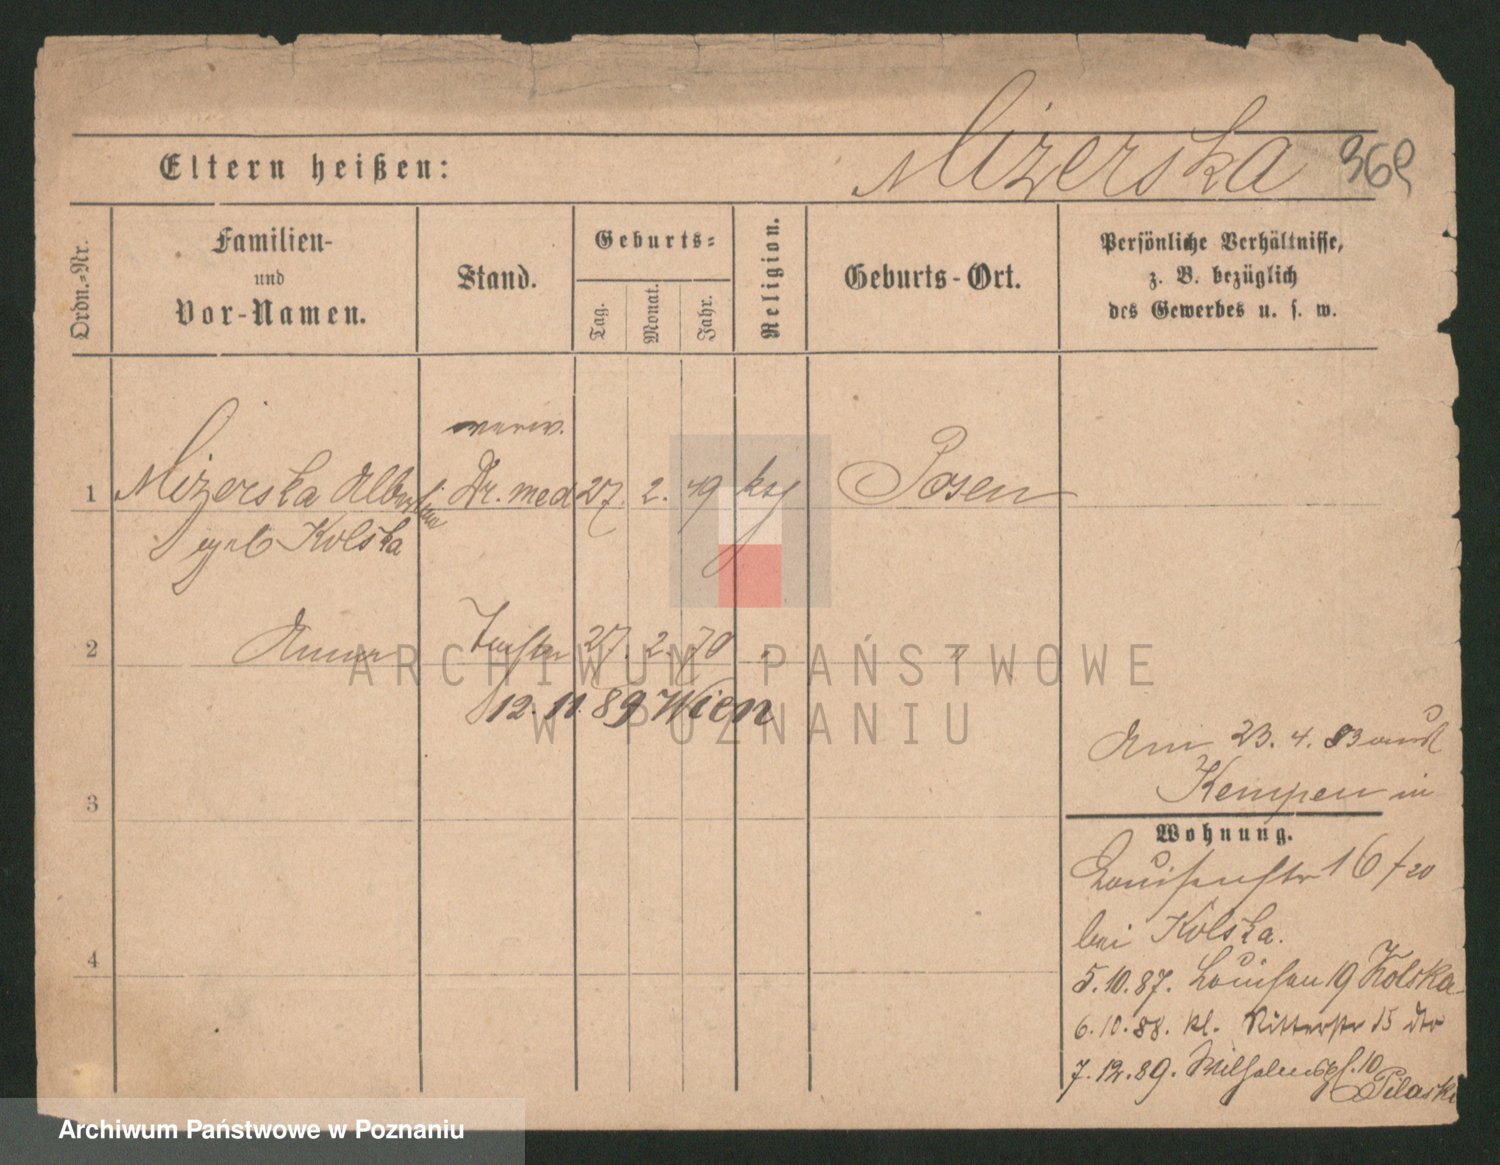 Mizerska 369
Eltern heißen:
Ordn.-Nr.
Familien-
und
Vor-Namen.
Stand.
Geburts-
Tag.
Monat.
Jahr.
Religion.
Geburts-Ort.
Persönliche Verhältnisse,
z. B. bezüglich
des Gewerbes u. s. w.
verw.
1 Mizerska Albertine Dr. med 27. 2. 49 kth Posen
geb Kolska
2 Anna Tochter 27. 2. 70 " "
12. 11. 89 Wien
Am 23. 4. 83 aus
Kempen in
3
Wohnung.
Louisenstr 16 / 20
bei Kolska.
4
5. 10. 87. Louisen 19 Kolska
6. 10. 88. kl. Ritterstr 15
7. 12. 89. Wilhelmspl. 10
Pilaski
ARCHIWUM PAŃSTWOWE
W POZNANIU
Archiwum Państwowe w Poznaniu